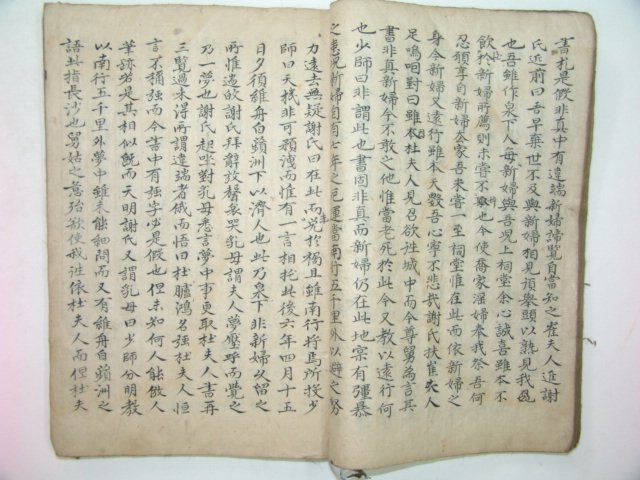 書札是假非真中有違端新婦諦覽自當知之崔夫人近謝
氏近前曰吾早棄世不及與新婦相見須擧頭以熟見我
也吾雖作泉下人每新婦與吾兄上祠堂余心誠喜雖本不
飮於新婦所薦則未嘗不取也今使喬家淫婦奉我祭吾何
忍頷享自新婦去家吾未嘗一至祠堂惟在此而依新婦之
身今新婦又遠行雖本天數吾心寧不悲哉謝氏扶崔夫人
足嗚咽對曰雖杜夫人見召欲往城中而今尊舅爲言其
書非真新婦今不敢之他惟當老死於此今又教以遠行何
也少師曰非謂此也書固非真而新婦仍在此地案有彊暴
之患況新婦自有七年之厄運當南行五千里外以避之努
力遠去無疑謝氏曰在此而免於禍且雖南行將焉所投少
師曰天機非可預洩而惟有一言相托此後六年四月十五
日夕須維舟白蘋洲下以濟人也此乃泉下非新婦久留之
所惟遄歸謝氏拜辭放聲哀哭乳母謂夫人夢壓呼而覺之
乃一夢也謝氏起坐對乳母悉言夢中事更取杜夫人書再
三覽過未得所謂違端者俄而悟曰杜臚鴻名强杜夫人恒
言不稱强而今書中有强字必是假也但未知何人能倣人
筆跡若是其相似旣而天明謝氏又謂乳母曰少師分明教
以南行五千里外夢中雖未能細問而又有維舟白蘋洲之
語此指長沙也舅姑之意殆欲使我往依杜夫人而但杜夫